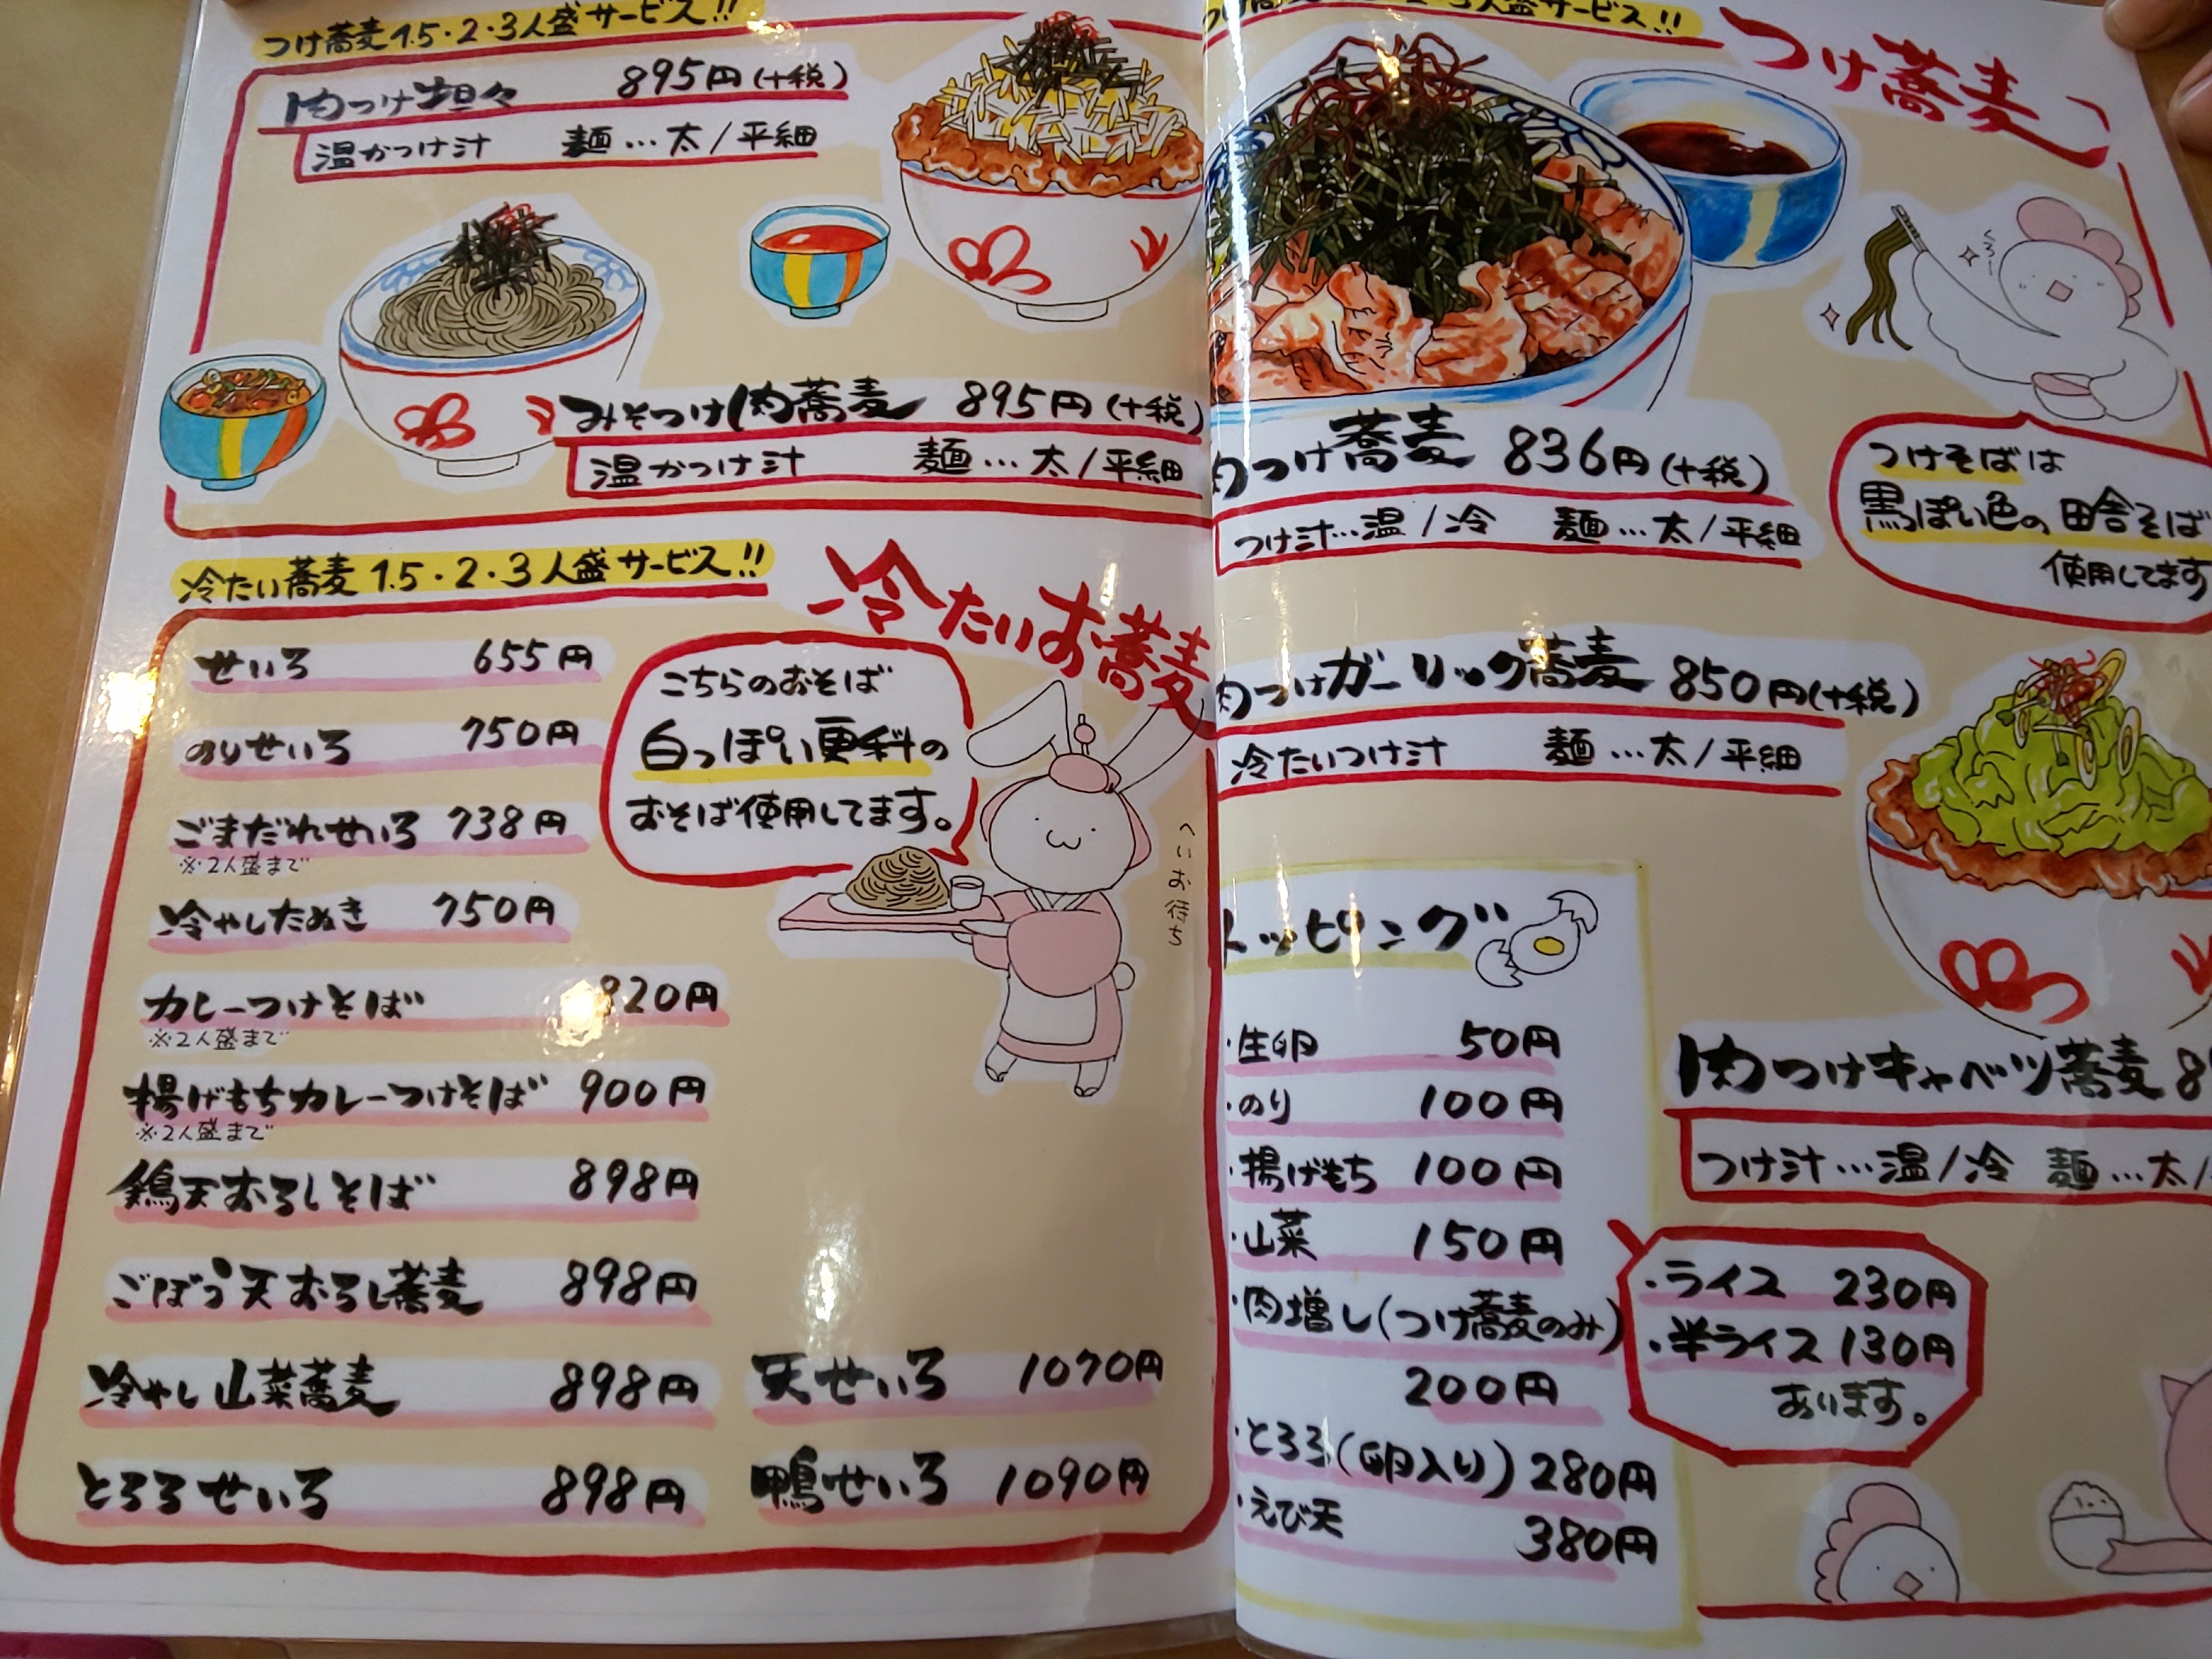 つけ蕎麦1.5・2・3人盛サービス!!
肉つけ坦々 895円(+税)
温かつけ汁 麺…太/平細
みそつけ肉蕎麦 895円(+税)
温かつけ汁 麺…太/平細
冷たい蕎麦1.5・2・3人盛サービス!!
冷たいお蕎麦
せいろ 655円
のりせいろ 750円
ごまだれせいろ 738円
※2人盛まで
冷やしたぬき 750円
カレーつけそば 820円
※2人盛まで
揚げもちカレーつけそば 900円
※2人盛まで
鶏天おろしそば 898円
ごぼう天おろし蕎麦 898円
冷やし山菜蕎麦 898円
とろろせいろ 898円
天せいろ 1070円
鴨せいろ 1090円
こちらのおそば
白っぽい更科の
おそば使用してます。
へいお待ち
2・3人盛サービス!!
つけ蕎麦
肉つけ蕎麦 836円(+税)
つけ汁…温/冷 麺…太/平細
つけそばは
黒っぽい色の田舎そば
使用してます
肉つけガーリック蕎麦 850円(+税)
冷たいつけ汁 麺…太/平細
肉つけキャベツ蕎麦
つけ汁…温/冷 麺…太/
トッピング
・生卵 50円
・のり 100円
・揚げもち 100円
・山菜 150円
・肉増し(つけ蕎麦のみ)
200円
・とろろ(卵入り) 280円
・えび天 380円
・ライス 230円
・半ライス 130円
あります。